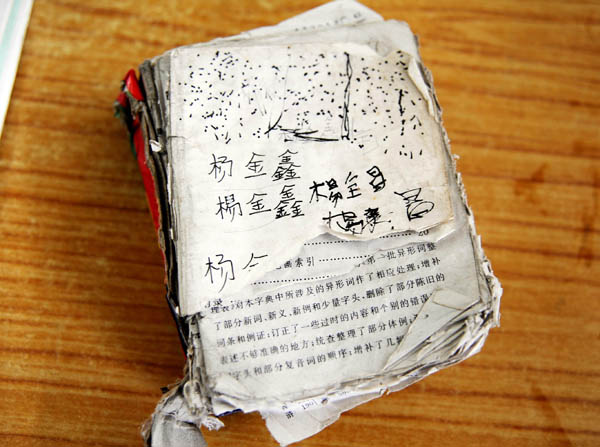 杨金鑫
楊金鑫 楊金昌
杨金
画索引
第一批异形词整
理表》对本字典中所涉及的异形词作了相应处理;增补
了部分新词、新义、新例和少量字头,删除了部分陈旧的
词条和例证;订正了一些过时的内容和个别的错误
表述不够准确的地方;统查整理了部分体例
字头和部分复音词的顺序;增补了几